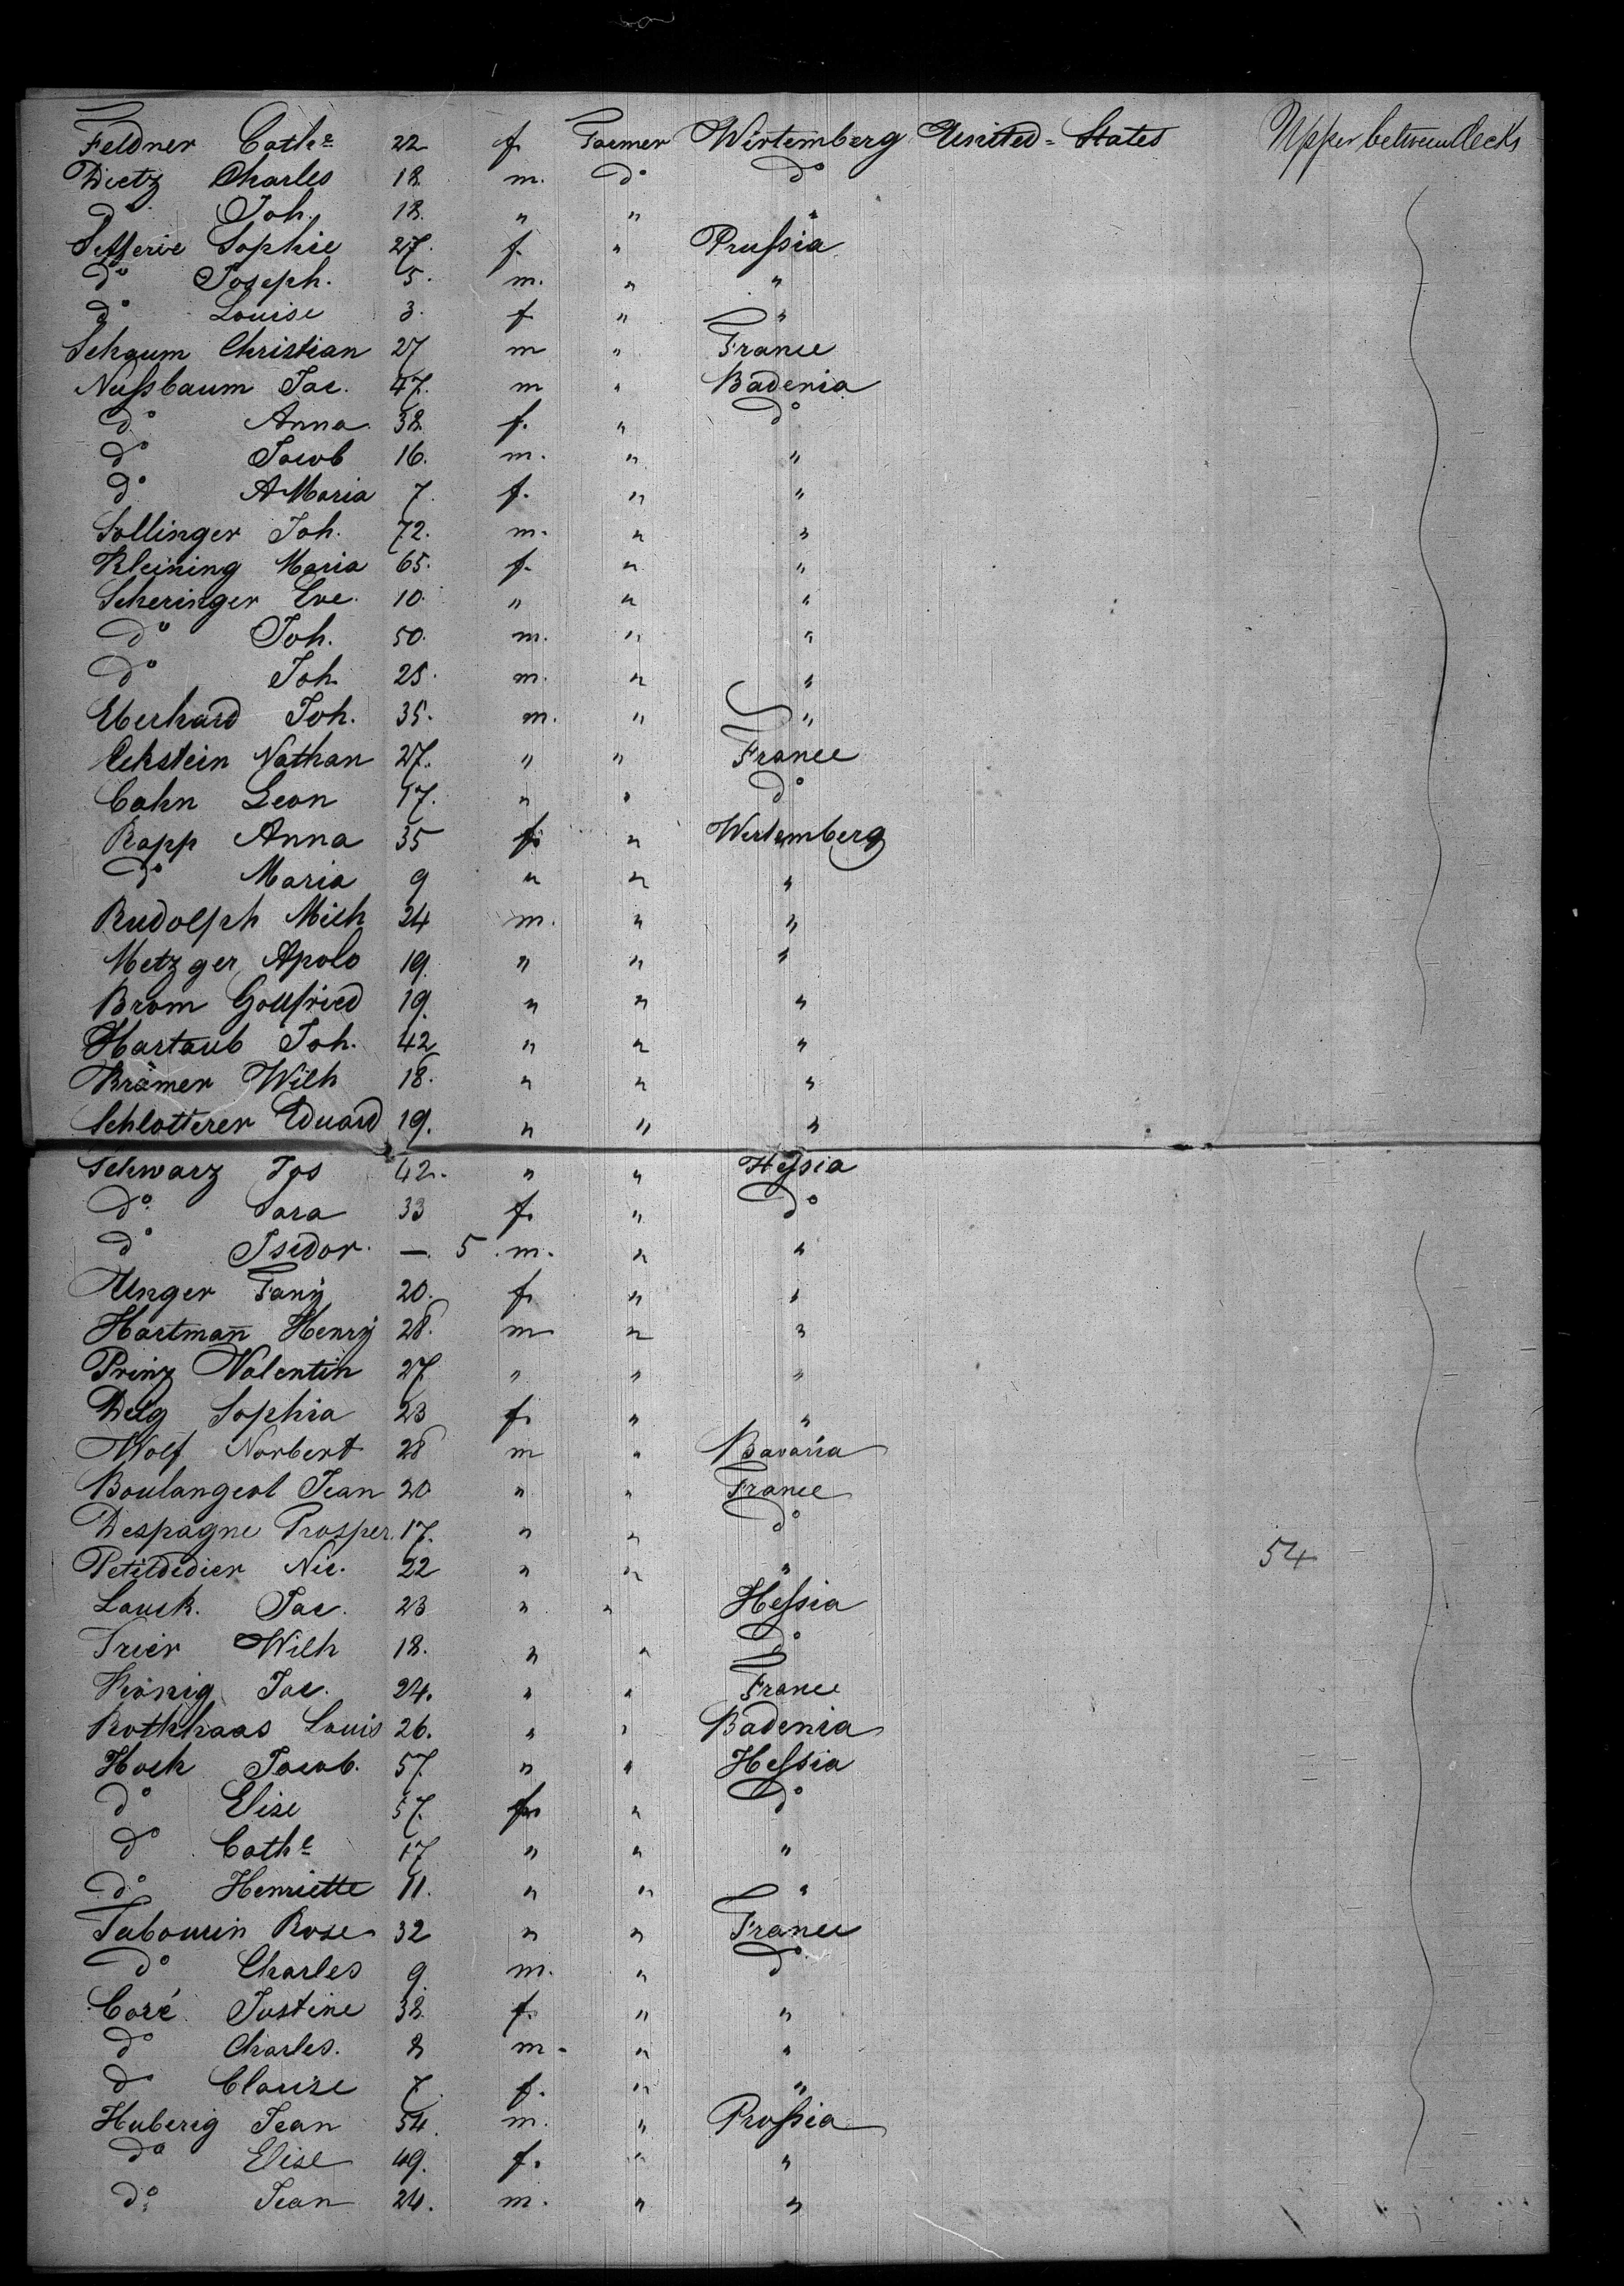 Feldner Cathe 22 f. Farmer Wirtemberg United-States Upper betweendecks
Dietz Charles 18. m. do do
do Joh. 18. " " "
Sophie 27. f. " Prussia
do Joseph. 5. m. " "
do Louise 3. f " "
Schaum Christian 27 m " France
Nussbaum Jac. 47. m " Badenia
do Anna 38 f. " do
do Jacob 16. m. " "
do A Maria 7. f. " "
Sollinger Joh. 72. m. " "
Kleining Maria 65. f. " "
Scheringer Eve. 10. " " "
do Joh. 50. m. " "
do Joh 25. m. " "
Eberhard Joh. 35. m. " "
Eckstein Nathan 27. " " France
Cahn Leon 17. " " do
Rapp Anna 35 f. " Wertemberg
do Maria 9 " " "
Rudolph Mich 24 m. " "
Metzger Apolo 19. " " "
Brom Gottfried 19. " " "
Hartaub Joh. 42 " " "
Krämer Wilh 18. " " "
Schlotterer Eduard 19. " " "
Schwarz Jos 42. " " Hessia
do Sara 33 f. " do
do Isidor. —. 5. m. " "
Unger Fany 20. f. " "
Hartman̄ Henry 28. m " "
Prinz Valentin 27 " " "
Delg Sophia 23 f. " "
Wolf Norbert 28 m " Bavaria
Boulangeot Jean 20 " " France
Despagne Prosper. 17. " " do
Petitdidier Nic. 22 " " " 54
Lauck. Jac. 23 " " Hessia
Trier Wilh 18. " " do
König Jac. 24. " " France
Rothhaas Louis 26. " " Badenia
Hoch Jacob. 57. " " Hessia
do Elise 57. f. " do
do Cathe 17 " " "
do Henriette 11. " " "
Tabourin Rose 32 " " France
do Charles 9. m. " do
Coré Justine 38. f. " "
do Charles. 8 m. " "
do Clarise 7. f. " "
Huberig Jean 54. m. " Prossia
do Elise 49. f. " "
do Jean 24. m. " "